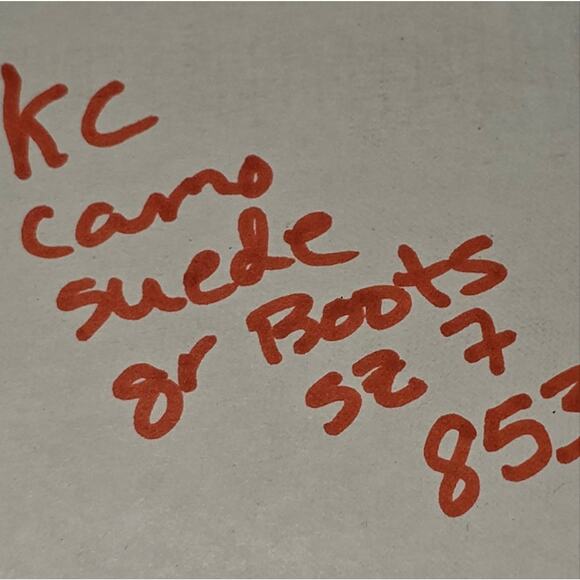 KC
camo
suede
gr Boots
sz 7
853